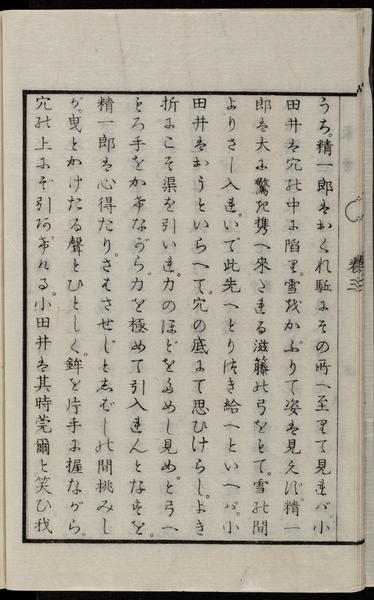 卷三
うち。精一郎はおくれ馳にその所へ至りて見れば。小
田井は穴の中に陷り。雪をかぶりて姿は見えず。精一
郎は大に驚き携へ來れる滋籐の弓をもて。雪の間
よりさし入れ。いで此先へとりつき給へといへば。小
田井はおうといらへて。穴の底にて思ひけらし。よき
折にこそ渠を引いれ。力のほどをためし見め。と弓へ
もろ手をかけながら力を極めて引入れんとなすを。
精一郎は心得たり。さはさせじとしばしの間挑みし
が。曳とかけたる聲とひとしく。鉾を片手に握ながら。
穴の上にぞ引あげける。小田井は其時莞爾と笑ひ我